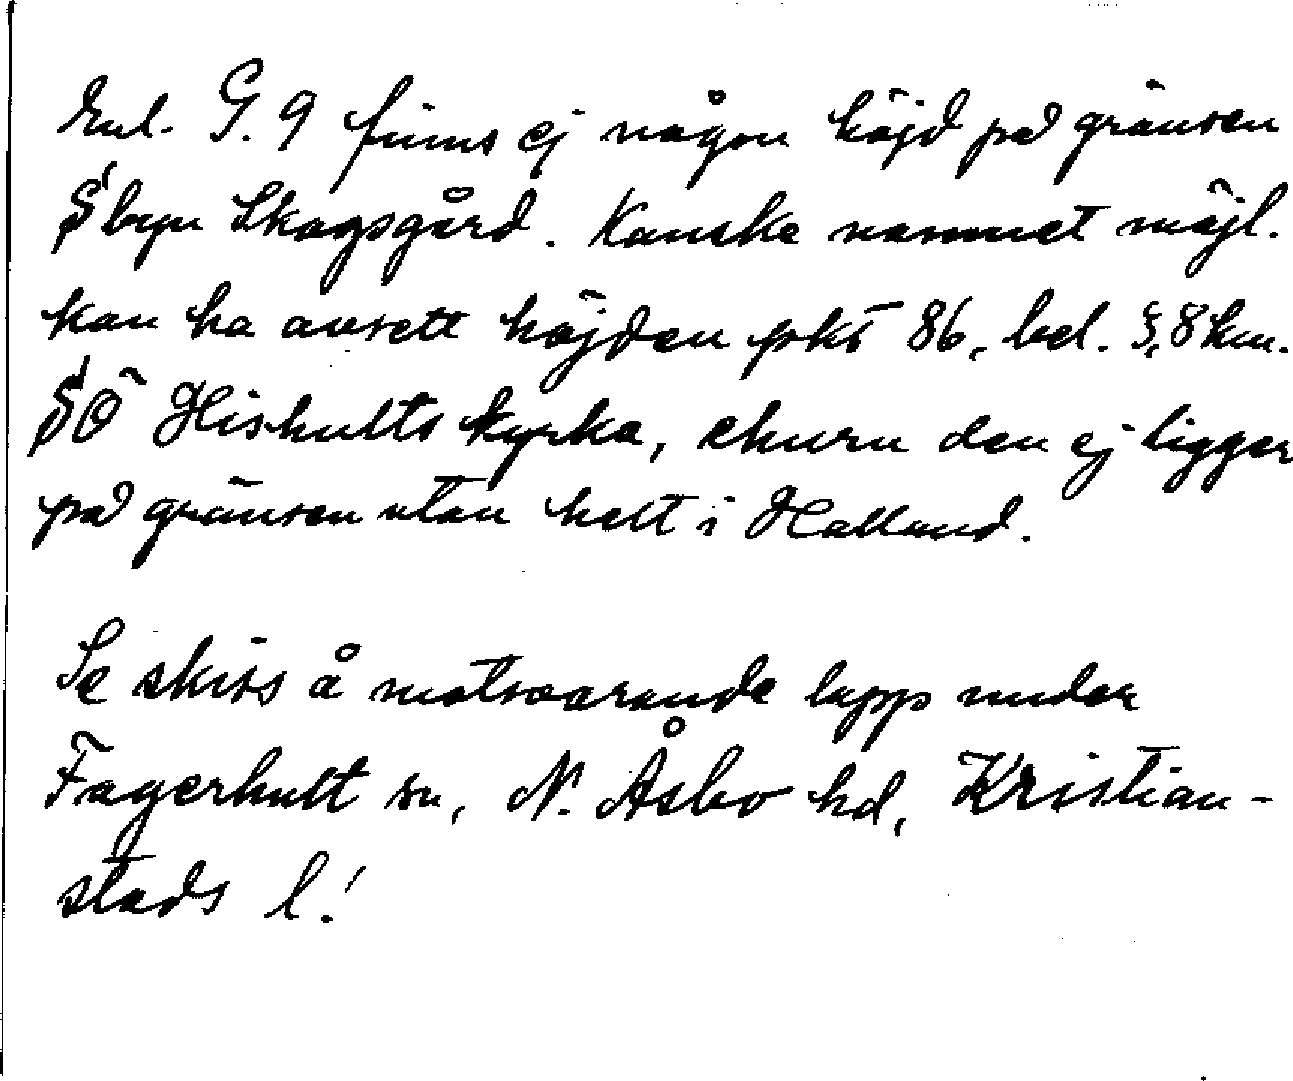 Enl. G. 9 finns ej någon höjd på gränsen
S byn Skogsgård. Kanske namnet möjl.
kan ha avsett höjden pkt 86, bel. 3,8 km.
SÖ Hishults kyrka, ehuru den ej ligger
på gränsen utan helt i Halland.
Se skiss å motsvarande lapp under
Fagerhult sn, N. Åsbo hd, Kristian-
stads l.!